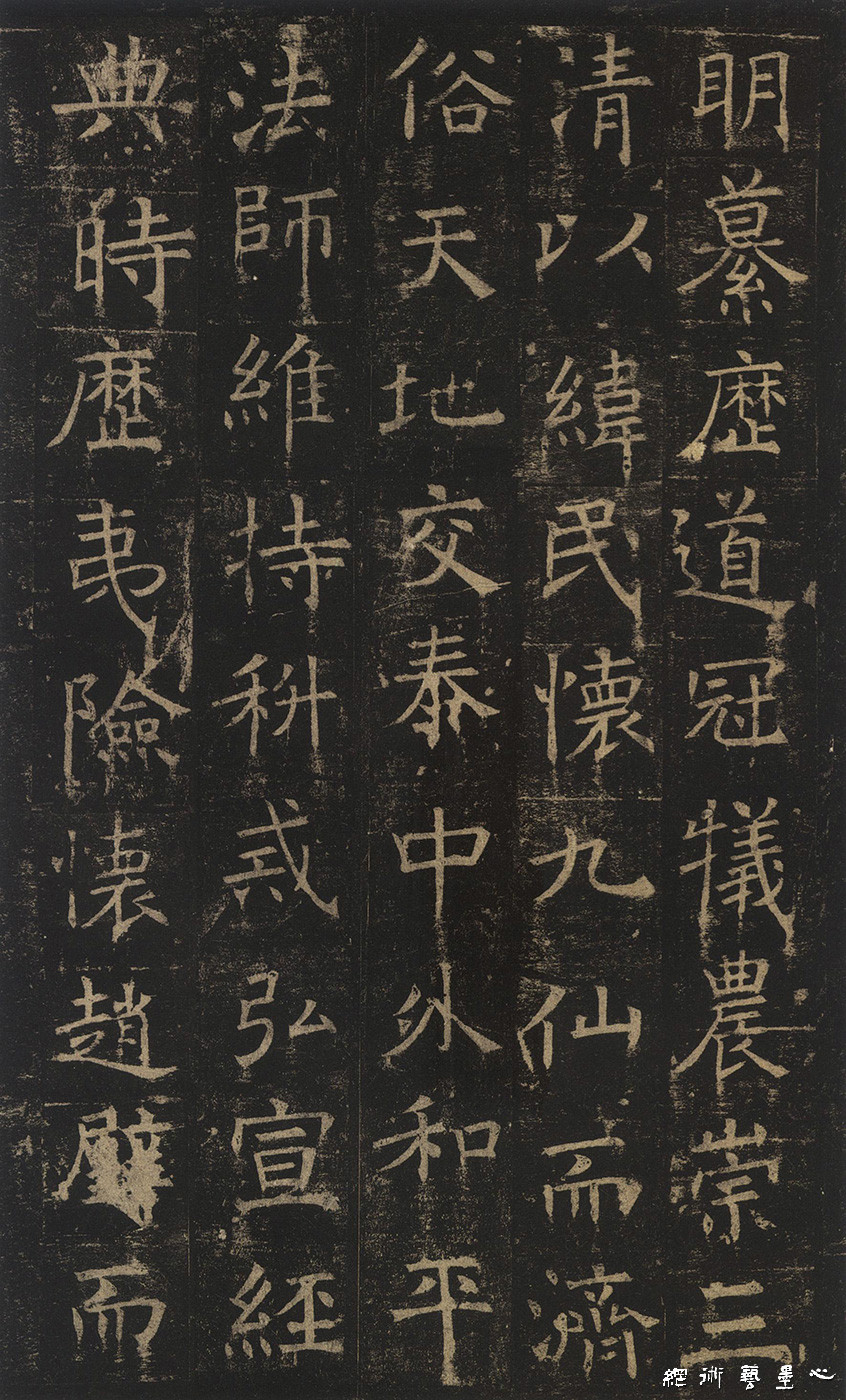 明纂歷道冠犧農崇三
清以緯民懷九仙而濟
俗天地交泰中外和平
法師維持科戒弘宣經
典時歷夷險懷趙璧而
心墨藝術網